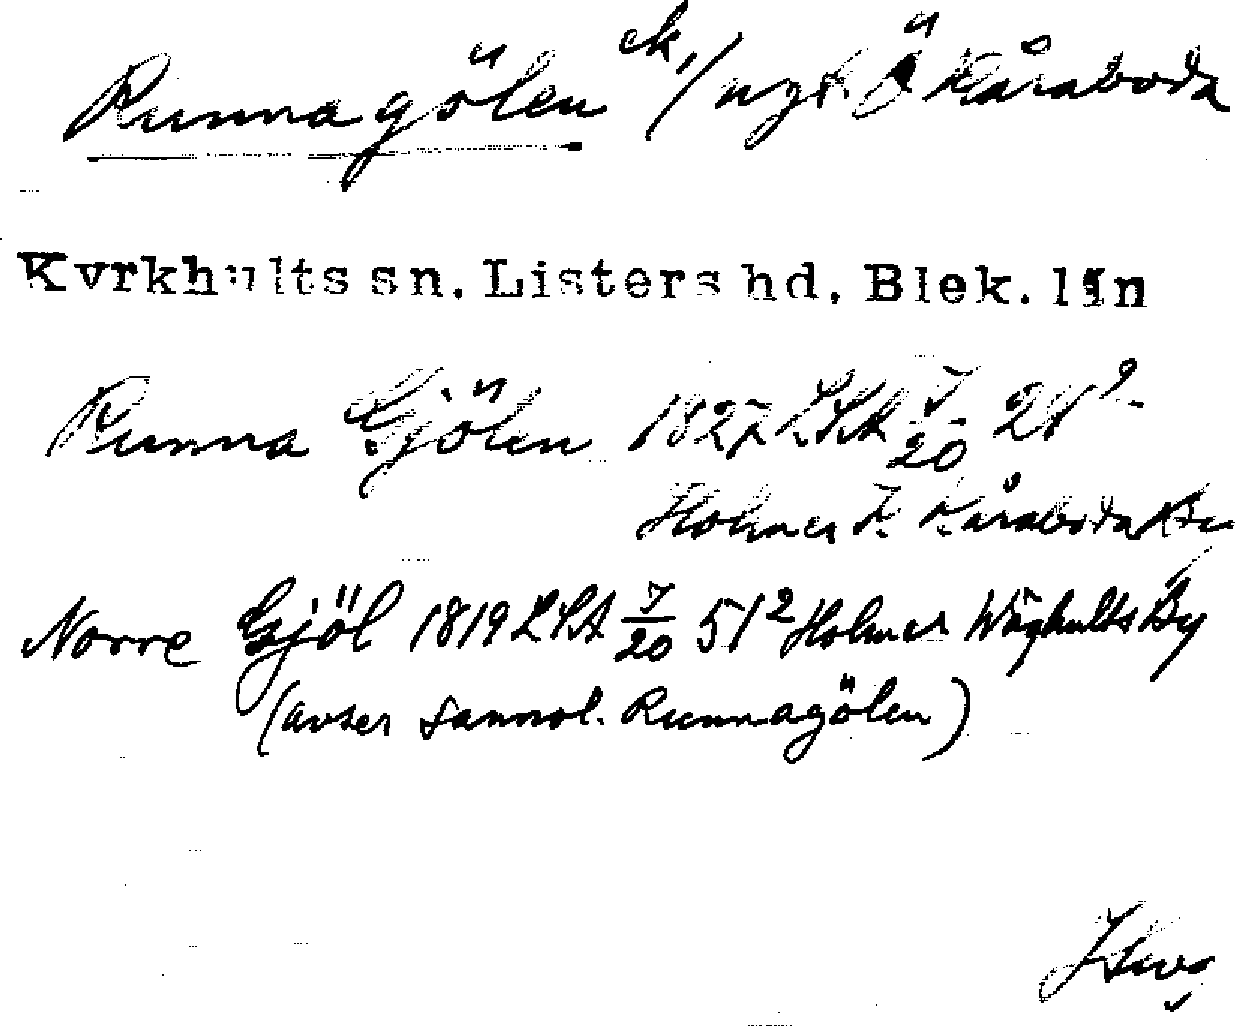 Runnagölen ek, / nyt. Ö Kåraboda
Kyrkhults sn. Listers hd. Blek. län
Runna Gjölen 1827 LSA J/20 24²
Holmer F. Kåraboda
Norre Gjöl 1819 LSA J/20 51² Holmer Wåghults By
(avser sannol. Runnagölen)